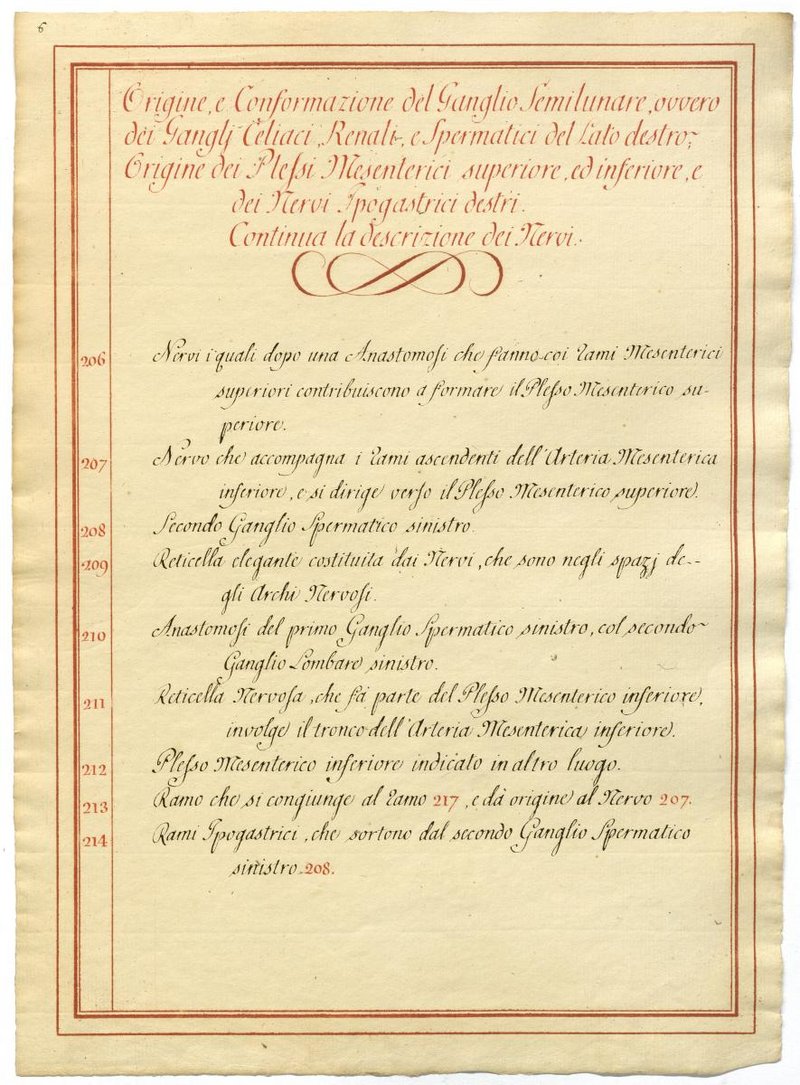 6
Origine, e Conformazione del Ganglio Semilunare, ovvero
dei Ganglj Celiaci, Renali, e Spermatici del Lato destro;
Origine dei Plessi Mesenterici superiore, ed inferiore, e
dei Nervi Ipogastrici destri.
Continua la descrizione dei Nervi.
206 Nervi i quali dopo una Anastomosi che fanno coi Rami Mesenterici
superiori contribuiscono a formare il Plesso Mesenterico su-
periore.
207 Nervo che accompagna i Rami ascendenti dell'Arteria Mesenterica
inferiore, e si dirige verso il Plesso Mesenterico superiore.
208 Secondo Ganglio Spermatico sinistro.
209 Reticella elegante costituita dai Nervi, che sono negli spazj de-
gli Archi Nervosi.
210 Anastomosi del primo Ganglio Spermatico sinistro, col secondo
Ganglio Lombare sinistro.
211 Reticella Nervosa, che fà parte del Plesso Mesenterico inferiore,
involge il tronco dell'Arteria Mesenterica inferiore.
212 Plesso Mesenterico inferiore indicato in altro luogo.
213 Ramo che si congiunge al Ramo 217, e dà origine al Nervo 207.
214 Rami Ipogastrici, che sortono dal secondo Ganglio Spermatico
sinistro 208.